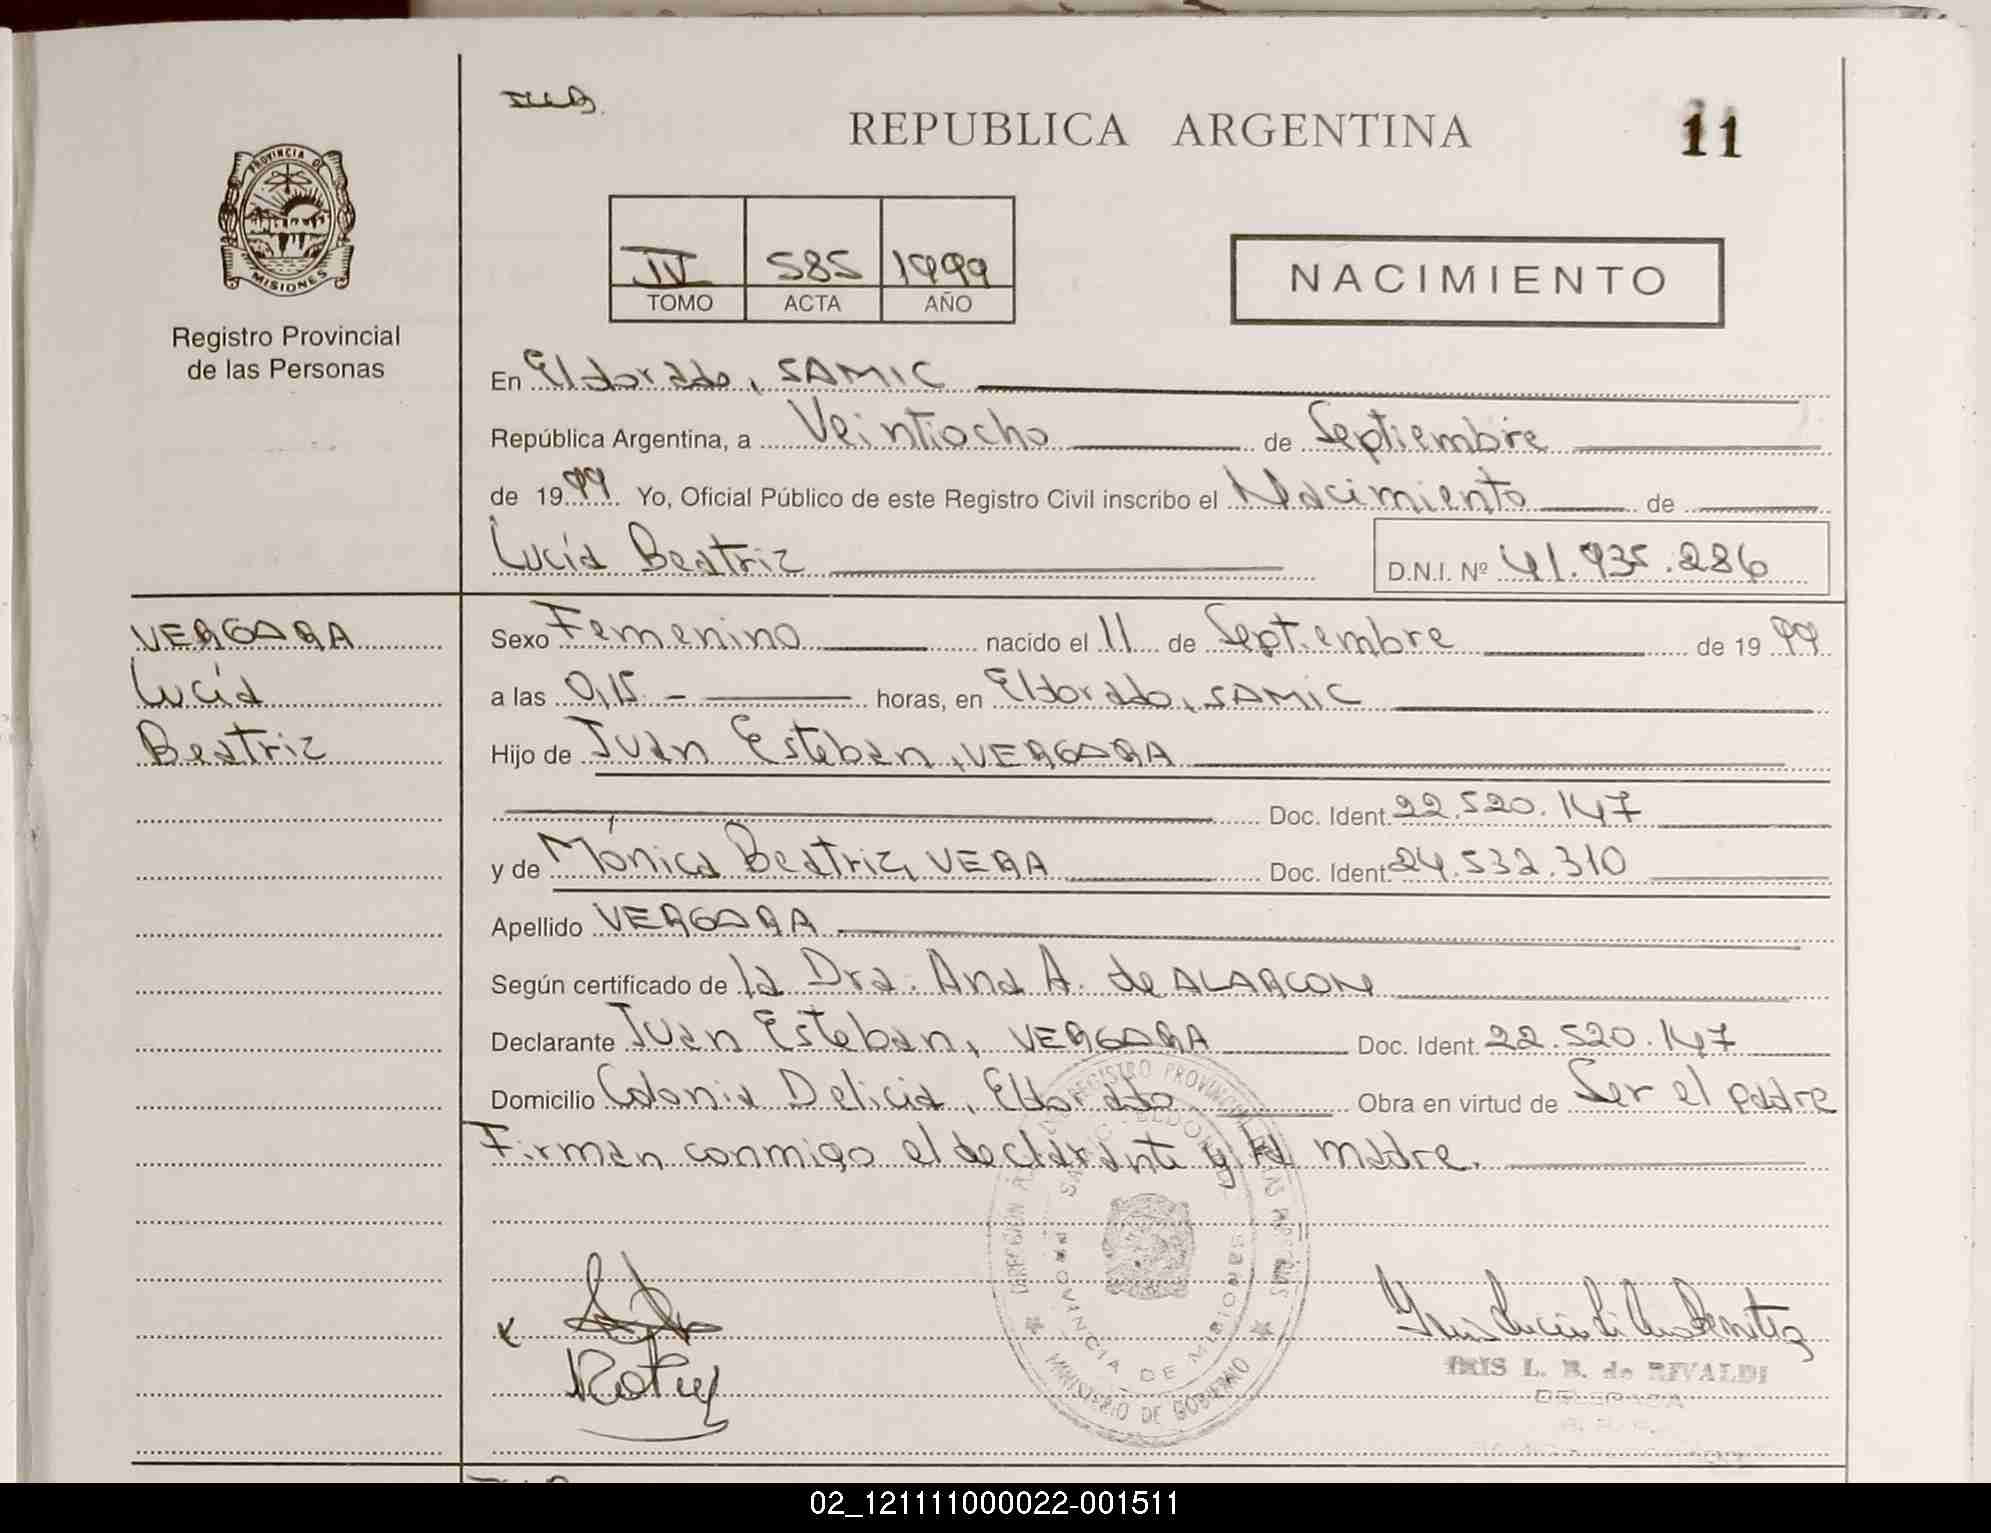 REPUBLICA ARGENTINA
11
PROVINCIA DE MISIONES
Registro Provincial
de las Personas
IV 585 1999
TOMO ACTA AÑO
NACIMIENTO
En Eldorado, SAMIC
República Argentina, a Veintiocho de Septiembre
de 1999 Yo, Oficial Público de este Registro Civil inscribo el Nacimiento de
Lucía Beatriz D.N.I. Nº 41.935.286
VERGARA
Lucía
Beatriz
Sexo Femenino nacido el 11 de Septiembre de 1999
a las 0,15 - horas, en Eldorado, SAMIC
Hijo de Juan Esteban, VERGARA
Doc. Ident. 22.520.147
y de Mónica Beatriz, VERA Doc. Ident. 24.532.310
Apellido VERGARA
Según certificado de la Dra. Ana A. de ALARCON
Declarante Juan Esteban, VERGARA Doc. Ident. 22.520.147
Domicilio Colonia Delicia, Eldorado Obra en virtud de Ser el padre
Firman conmigo el declarante y la madre.
REGISTRO PROVINCIAL DE LAS PERSONAS
PROVINCIA DE MISIONES
MINISTERIO DE GOBIERNO
x
IRIS L. B. de RIVALDI
02_121111000022-001511